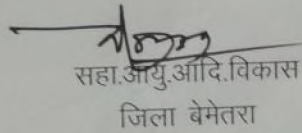 सहा.आयु.आदि.विकास
जिला बेमेतरा